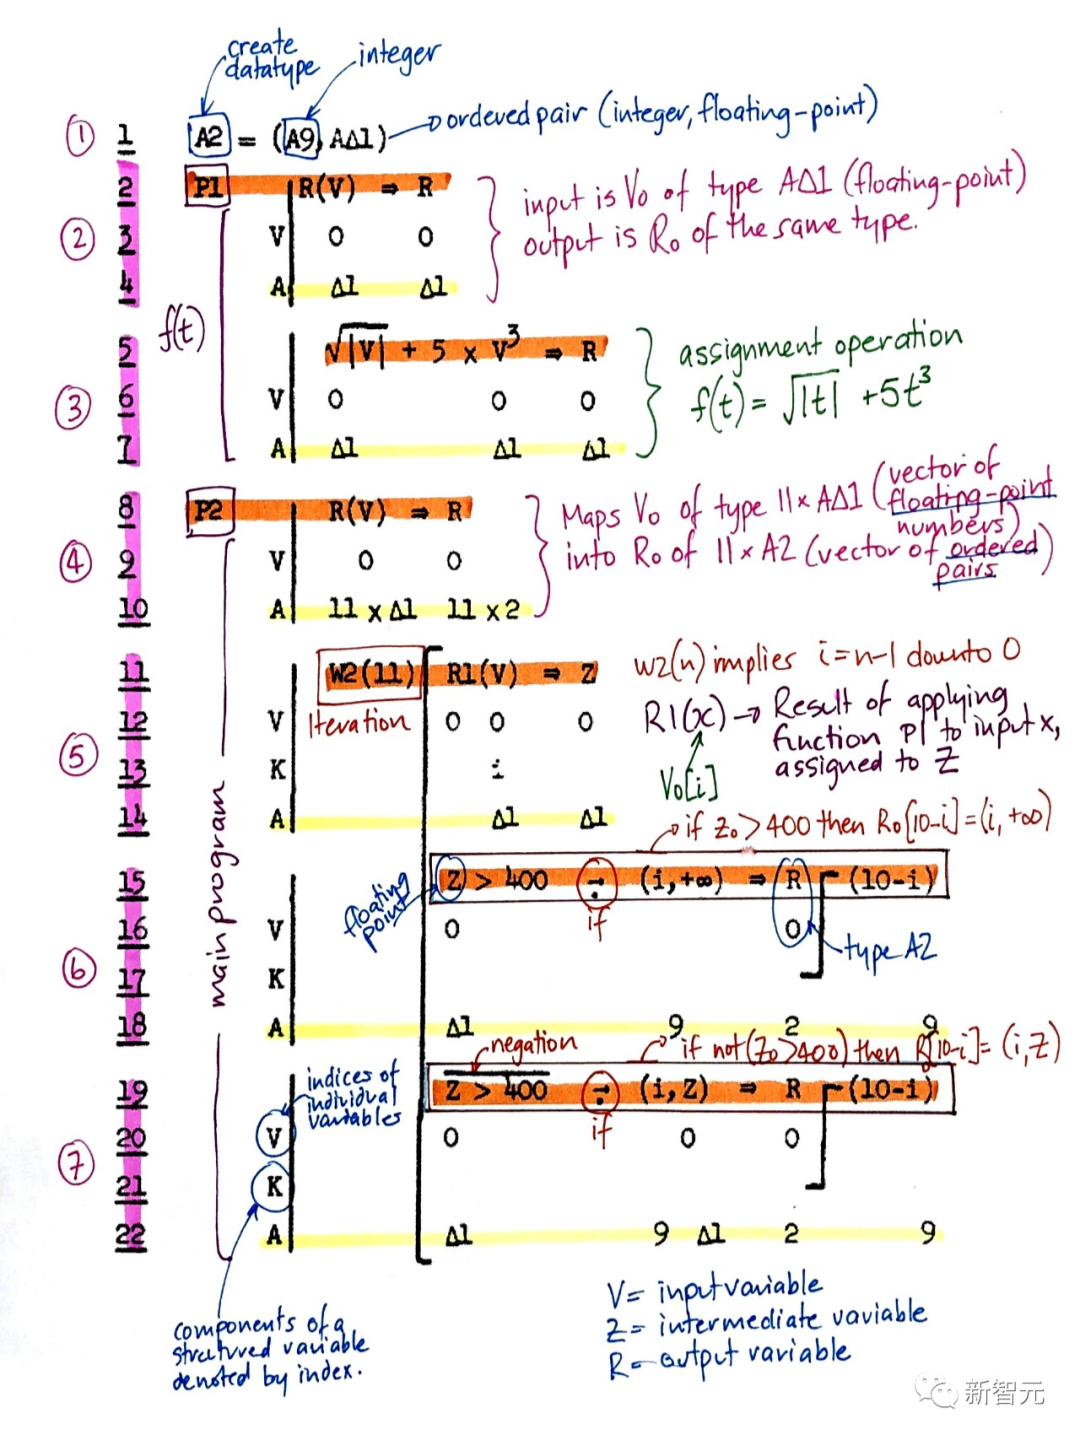 create
datatype
integer
① 1 A2 = (A9, AΔ1) ordered pair (integer, floating-point)
2 P1 R(V) ⇒ R
② 3 V 0 0
4 A Δ1 Δ1
input is V₀ of type AΔ1 (floating-point)
output is R₀ of the same type.
f(t)
5 √|V| + 5 × V³ ⇒ R
③ 6 V 0 0 0
7 A Δ1 Δ1 Δ1
assignment operation
f(t) = √|t| + 5t³
8 P2 R(V) ⇒ R
④ 9 V 0 0
10 A 11 x Δ1 11 x 2
Maps V₀ of type 11× AΔ1 (vector of
floating-point
numbers)
into R₀ of 11× A2 (vector of ordered
pairs)
main program
11 W2(11) R1(V) ⇒ Z
12 V Iteration 0 0 0
⑤ 13 K i
14 A Δ1 Δ1
W2(n) implies i = n-1 downto 0
R1(x) → Result of applying
function P1 to input x,
assigned to Z
V₀[i]
if Z₀ > 400 then R₀[10-i] = (i, +∞)
15 Z > 400 ⇁ (i,+∞) ⇒ R (10-i)
floating
point
if
16 V 0 0
type A2
⑥ 17 K
18 A Δ1 9 2 9
negation
if not (Z₀ > 400) then R[10-i] = (i, Z)
19 Z > 400 ⇁ (i,Z) ⇒ R (10-i)
indices of
individual
variables
if
20 V 0 0 0
⑦ 21 K
22 A Δ1 9 Δ1 2 9
components of a
structured variable
denoted by index.
V = input variable
Z = intermediate variable
R = output variable
新智元